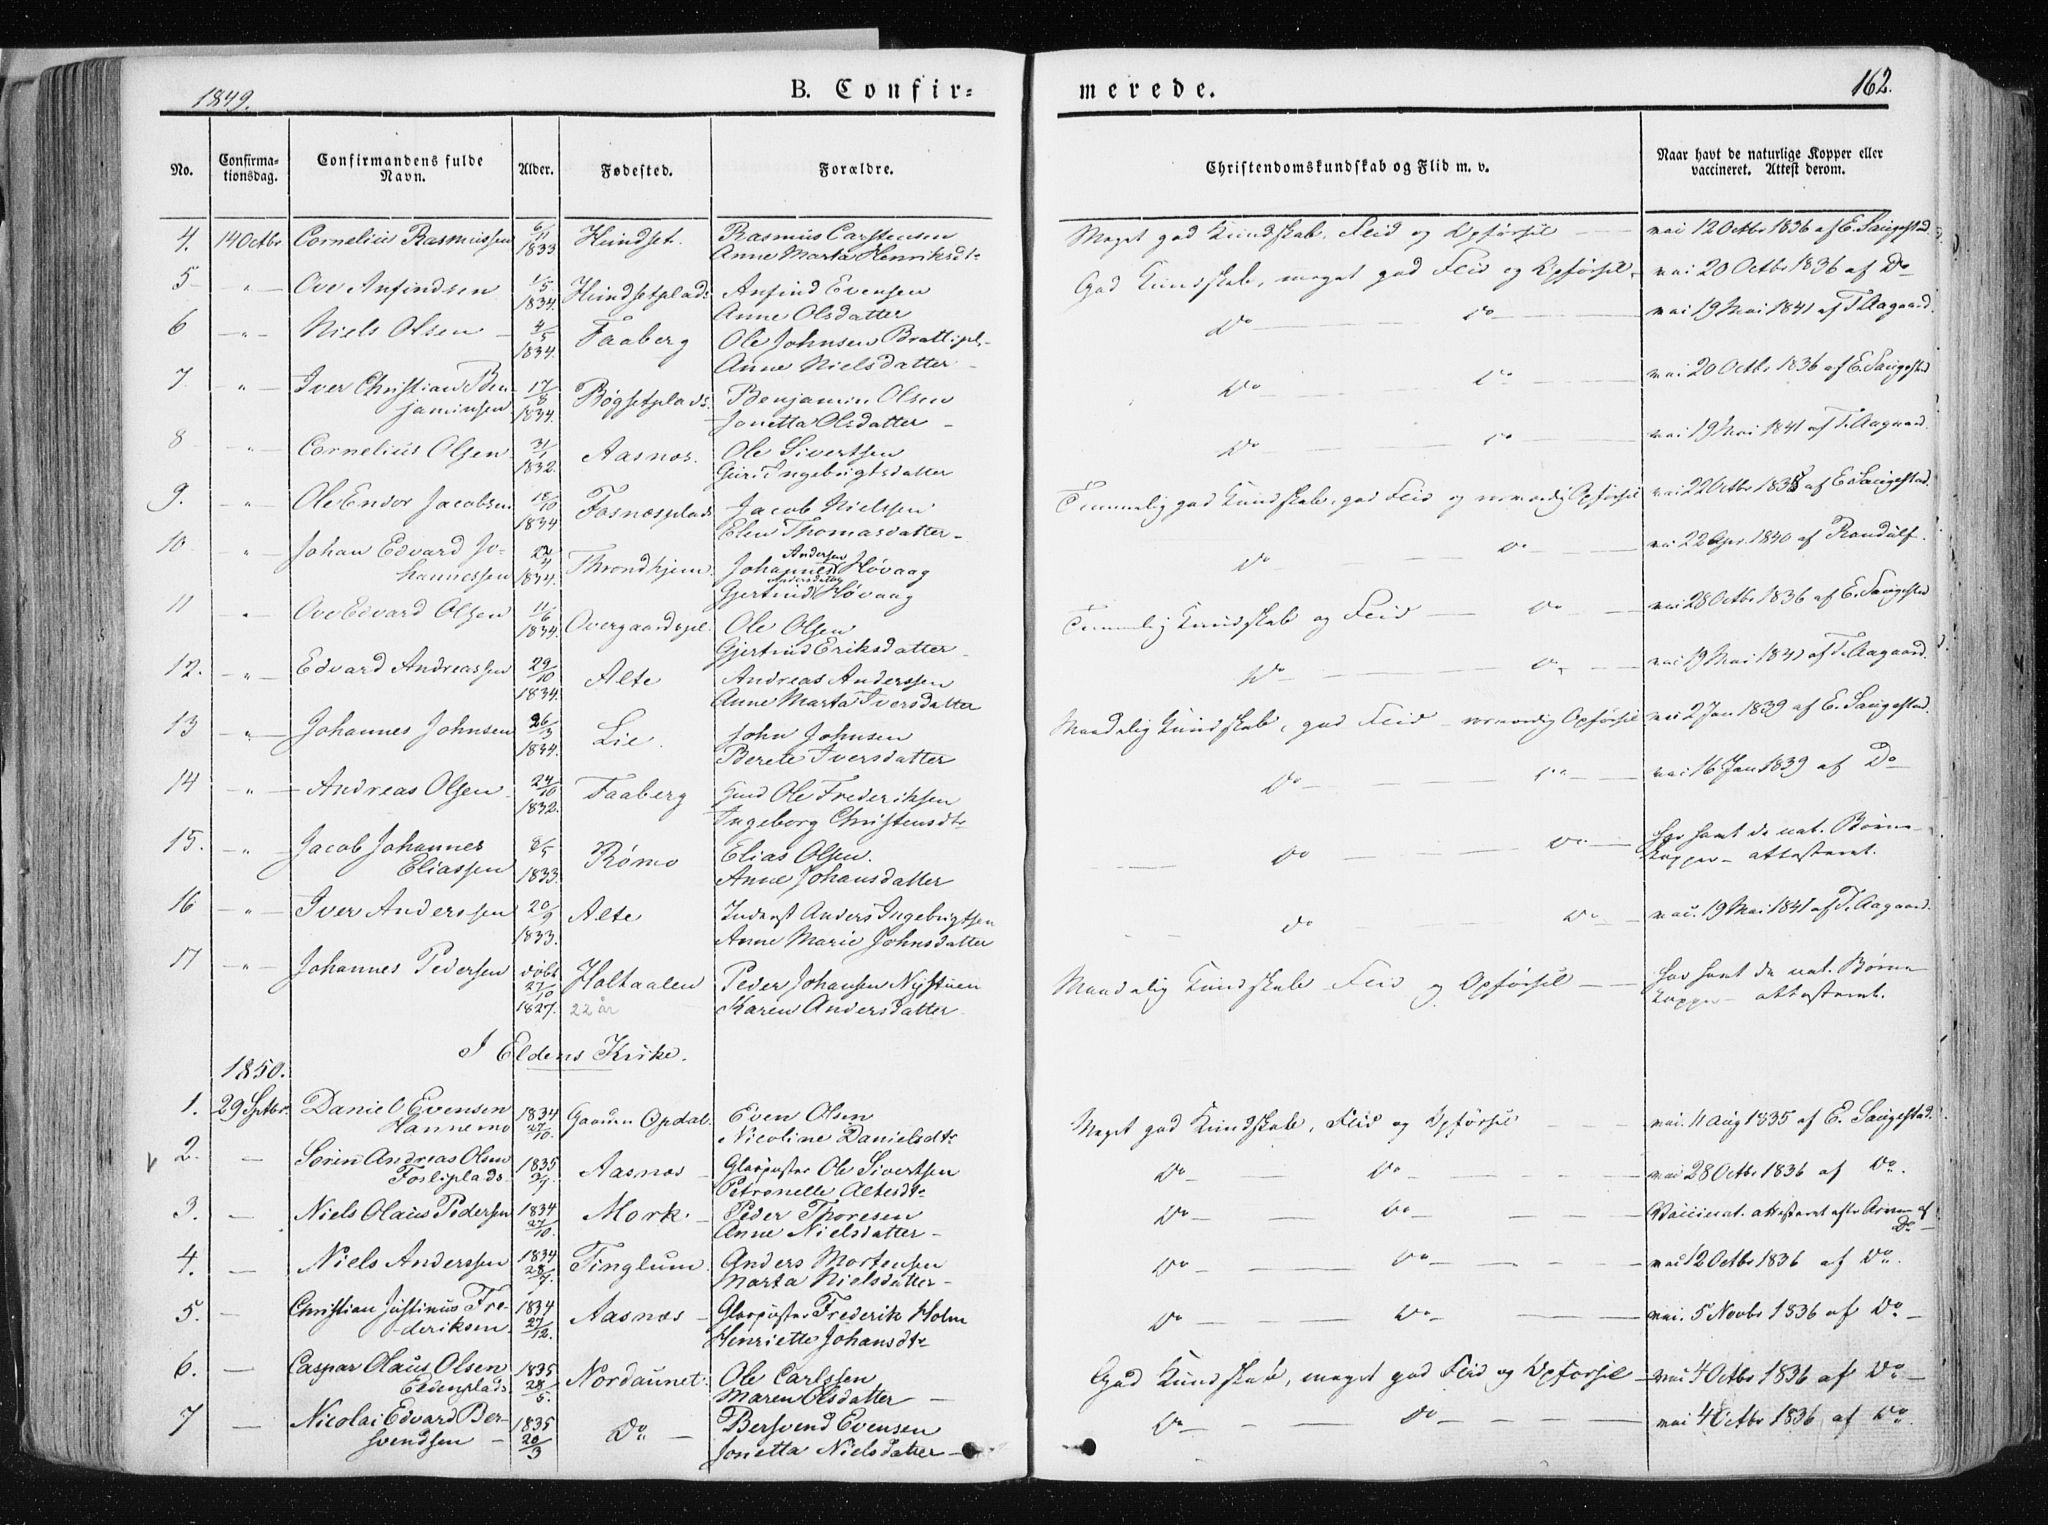 1849.
B. Confir=
merede.
162.
No.
Confirma-
tionsdag.
Confirmandens fulde
Navn.
Alder.
Fødested.
Forældre.
Christendomskundskab og Flid m. v.
Naar havt de naturlige Kopper eller
vaccineret. Attest derom.
4. 14 Octbr Cornelius Rasmussen 6/11 1833 Heindset. Rasmus Carstensen
Anne Marta Henriksdtr
Meget god Kundskab, Flid og Opførsel vac 12 Octbr 1836 af E. Saugestad.
5 " Ove Anfindsen 1/5 1834. Heindsetplads Anfind Evensen
Anne Olsdatter
God Kundskab, meget god Flid og Opførsel vac 20 Octbr 1836 af Do
6 " Niels Olsen 4/5 1834. Faaberg Ole Johnsen Brattipl.
Anne Nielsdatter
Do Do vac 19 Mai 1841 af T. Aagaard.
7 " Iver Christian Ben-
jaminsen 17/8 1834. Bøgsetplads. Benjamin Olsen
Jonetta Olsdatter
Do Do vac 20 Octbr 1836 af E. Saugestad
8 " Cornelius Olsen 31/1 1832. Aasnes. Ole Sivertsen
Guri Ingebrigtsdatter
Do Do vac 19 Mai 1841 af T. Aagaard.
9. " Ole Endor Jacobsen 18/10 1834 Fosnesplads Jacob Nielsen
Elen Thomasdatter
Temmelig god Kundskab, god Flid og Opførsel vac 22 Octbr 1835 af E. Saugestad.
10 " Johan Edvard Jo-
hannessen 22/4 1834. Throndhjem. Johannes Andersen Høvaag
Gjertrud Andersdatter Høvaag
Do Do vac 22 Apr. 1840 af Randulf.
11 " Ove Edvard Olsen 11/6 1834. Overgaardspl. Ole Olsen
Gjertrud Eriksdatter
Temmelig Kundskab og Flid Do vac 28 Octbr 1836 af E. Saugestad
12. " Edvard Andreassen 29/10 1834. Alte Andreas Anderssen
Anne Marta Iversdatter
Do Do vac 19 Mai 1841 af T. Aagaard.
13 " Johannes Johnsen 26/3 1834. Lie. John Johnsen
Berete Iversdatter
Maadelig Kundskab, god Flid Opførsel vac 2 Jan 1839 af E. Saugestad.
14 " Andreas Olsen 24/10 1832. Faaberg Ole Frederiksen
Ingeborg Christensdtr
Do Do vac 16 Jan 1839 af Do
15. " Jacob Johannes
Eliassen 8/5 1833. Rømo Elias Olsen.
Anne Johansdatter
Do Do Har havt de nat. Børne-
kopper attesteret.
16 " Iver Anderssen 20/9 1833. Alte Inderst Anders Ingebrigtsen
Anne Marie Johnsdatter
Do Do vac. 19 Mai 1841 af T. Aagaard.
17 " Johannes Pedersen døbt 27/10 1827. Holtaalen
22 år Peder Johansen Nystuen
Karen Andersdatter
Maadelig Kundskab Flid og Opførsel Har havt de nat. Børne
kopper attesteret.
I Eldens Kirke.
1850.
1. 29 Septbr. Daniel Evensen
Hannemo 1834 27/10. Gaarden Opdal. Even Olsen
Nicoline Danielsdtr
Meget god Kundskab, Flid og Opførsel vac. 11 Aug 1835 af E. Saugestad.
v 2. Søren Andreas Olsen
Fosliplads. 1835 3/7 Aasnes Ole Sivertsen
Petronelle Altesdtr
Do Do vac 28 Octbr 1836 af Do.
3. Niels Olaus Pedersen 1834 27/10. Mork Peder Thoresen
Anne Nielsdatter
Do Do Vaccinat. attesteret efter af
Do
4. Niels Anderssen 1834 28/7. Tinglum Anders Mortensen
Marta Nielsdatter
Do Do vac 12 Octbr 1836 af Do.
5. Christian Justinus Fre-
deriksen. 1834 27/12. Aasnes Frederik Holm
Henriette Johansdtr
Do Do vac. 5 Novbr 1836 af Do
6. Caspar Olaus Olsen
Eldenplads 1835 28/5. Nordaunet Ole Carlssen
Maren Olsdatter
God Kundskab, meget god Flid og Opførsel vac 4 Octbr 1836 af Do
7 Nicolai Edvard Ber-
svendsen 1835 20/3 Do Bersvend Evensen
Jonetta Nielsdatter
Do Do vac 4 Octbr 1836 af Do.